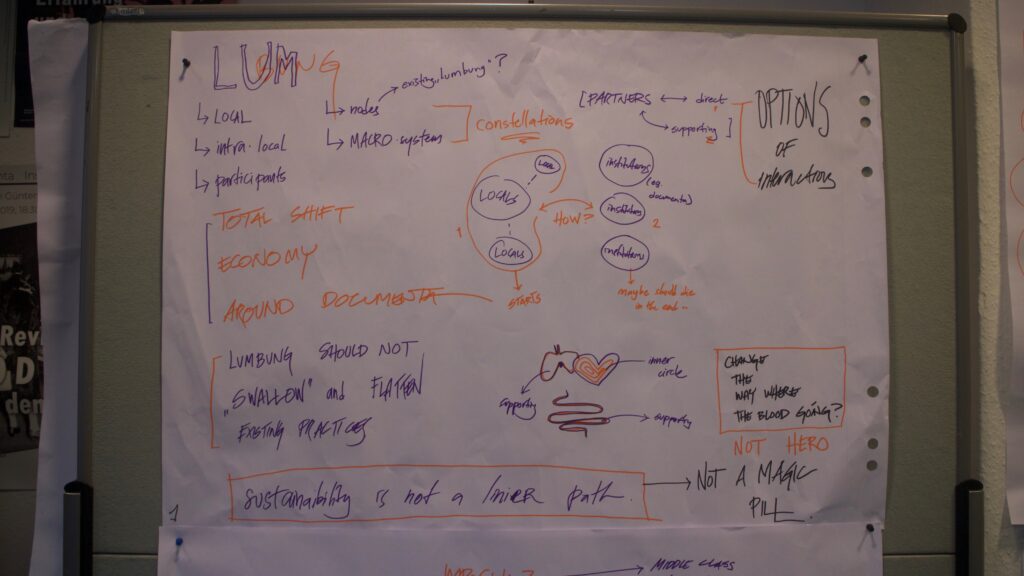 LUMBUNG
↳ LOCAL
↳ intra·local
↳ participants
↳ nodes
existing „lumbung"?
↳ MACRO·system
constellations
[PARTNERS ↔ direct
supporting]
OPTIONS
OF
interactions
LOCALS
LOCALS
1
STARTS
HOW?
institutions
(eg. documenta)
institutions
2
institutions
maybe should die
in the end..
TOTAL SHIFT
ECONOMY
AROUND DOCUMENTA
LUMBUNG SHOULD NOT
„SWALLOW" and FLATTEN
EXISTING PRACTICES
inner
circle
supporting
supporting
CHANGE
THE
WAY WHERE
THE BLOOD GOING?
NOT HERO
sustainability is not a linier path.
→ NOT A MAGIC
PILL.
1
MIDDLE CLASS
Revi
den